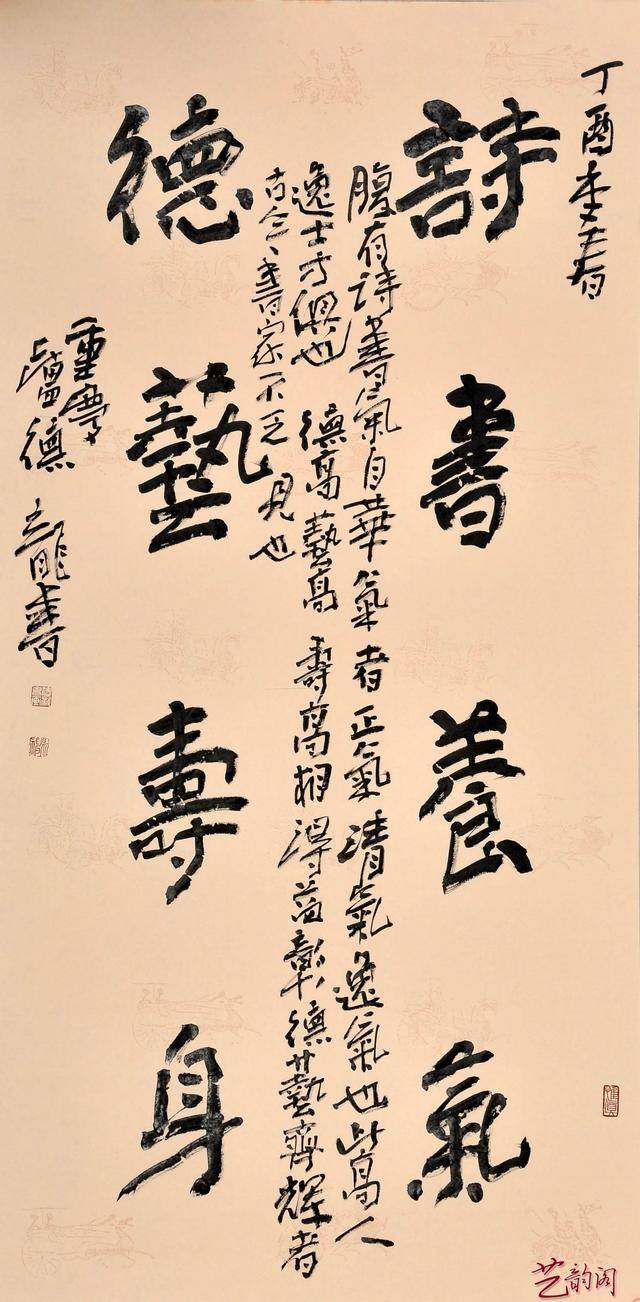 丁酉季春
詩書養氣
腹有诗書氣自華氣者正氣清氣逸氣也此高人
逸士方俱也 德高藝高 壽高相得益彰德藝齊輝者
古今書家不乏見也
德藝壽身
重孝
龍書
艺韵阁